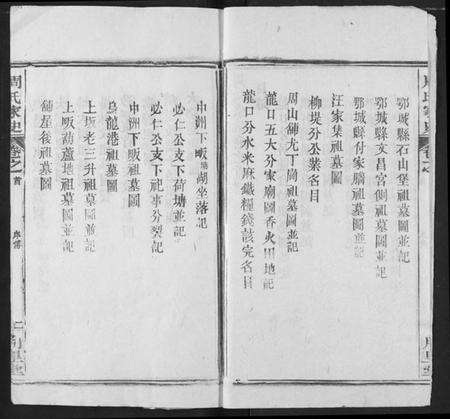 鄂城縣石山堡祖墓圖並記
鄂城縣文昌宮側祖墓圖並記
鄂城縣付家牆祖墓圖並記
汪家集祖墓圖
柳堤分公業各目
周山舖尤丁崗祖墓圖並記
龍口五大分家廟圖香火田地記
龍口分水米麻鐵糧錢該完名目
中洲下畈湖坐落記
必仁公支下荷塘並記
必仁公支下祀事分裂記
中洲下畈祖墓圖
烏龍港祖墓圖
上坂老三升祖墓圖並記
上畈葫蘆地祖墓圖並記
舖屋後祖墓圖
周氏家史
卷之首